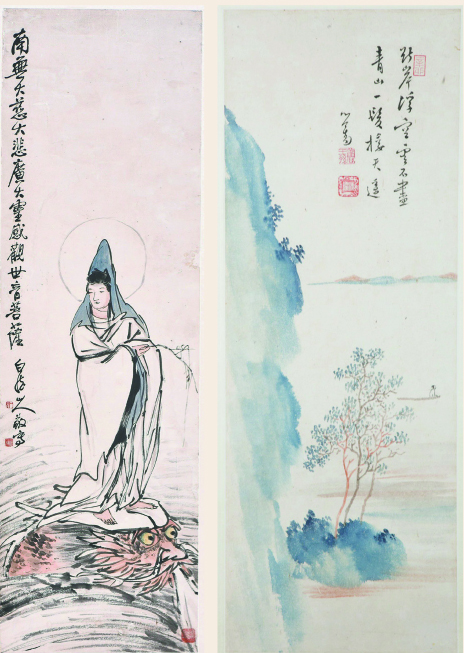 南無大慈大悲廣大靈感觀世音菩薩
白龍山人敬寫
斷岸浮空雲不盡
青山一髮接天遙
心畬